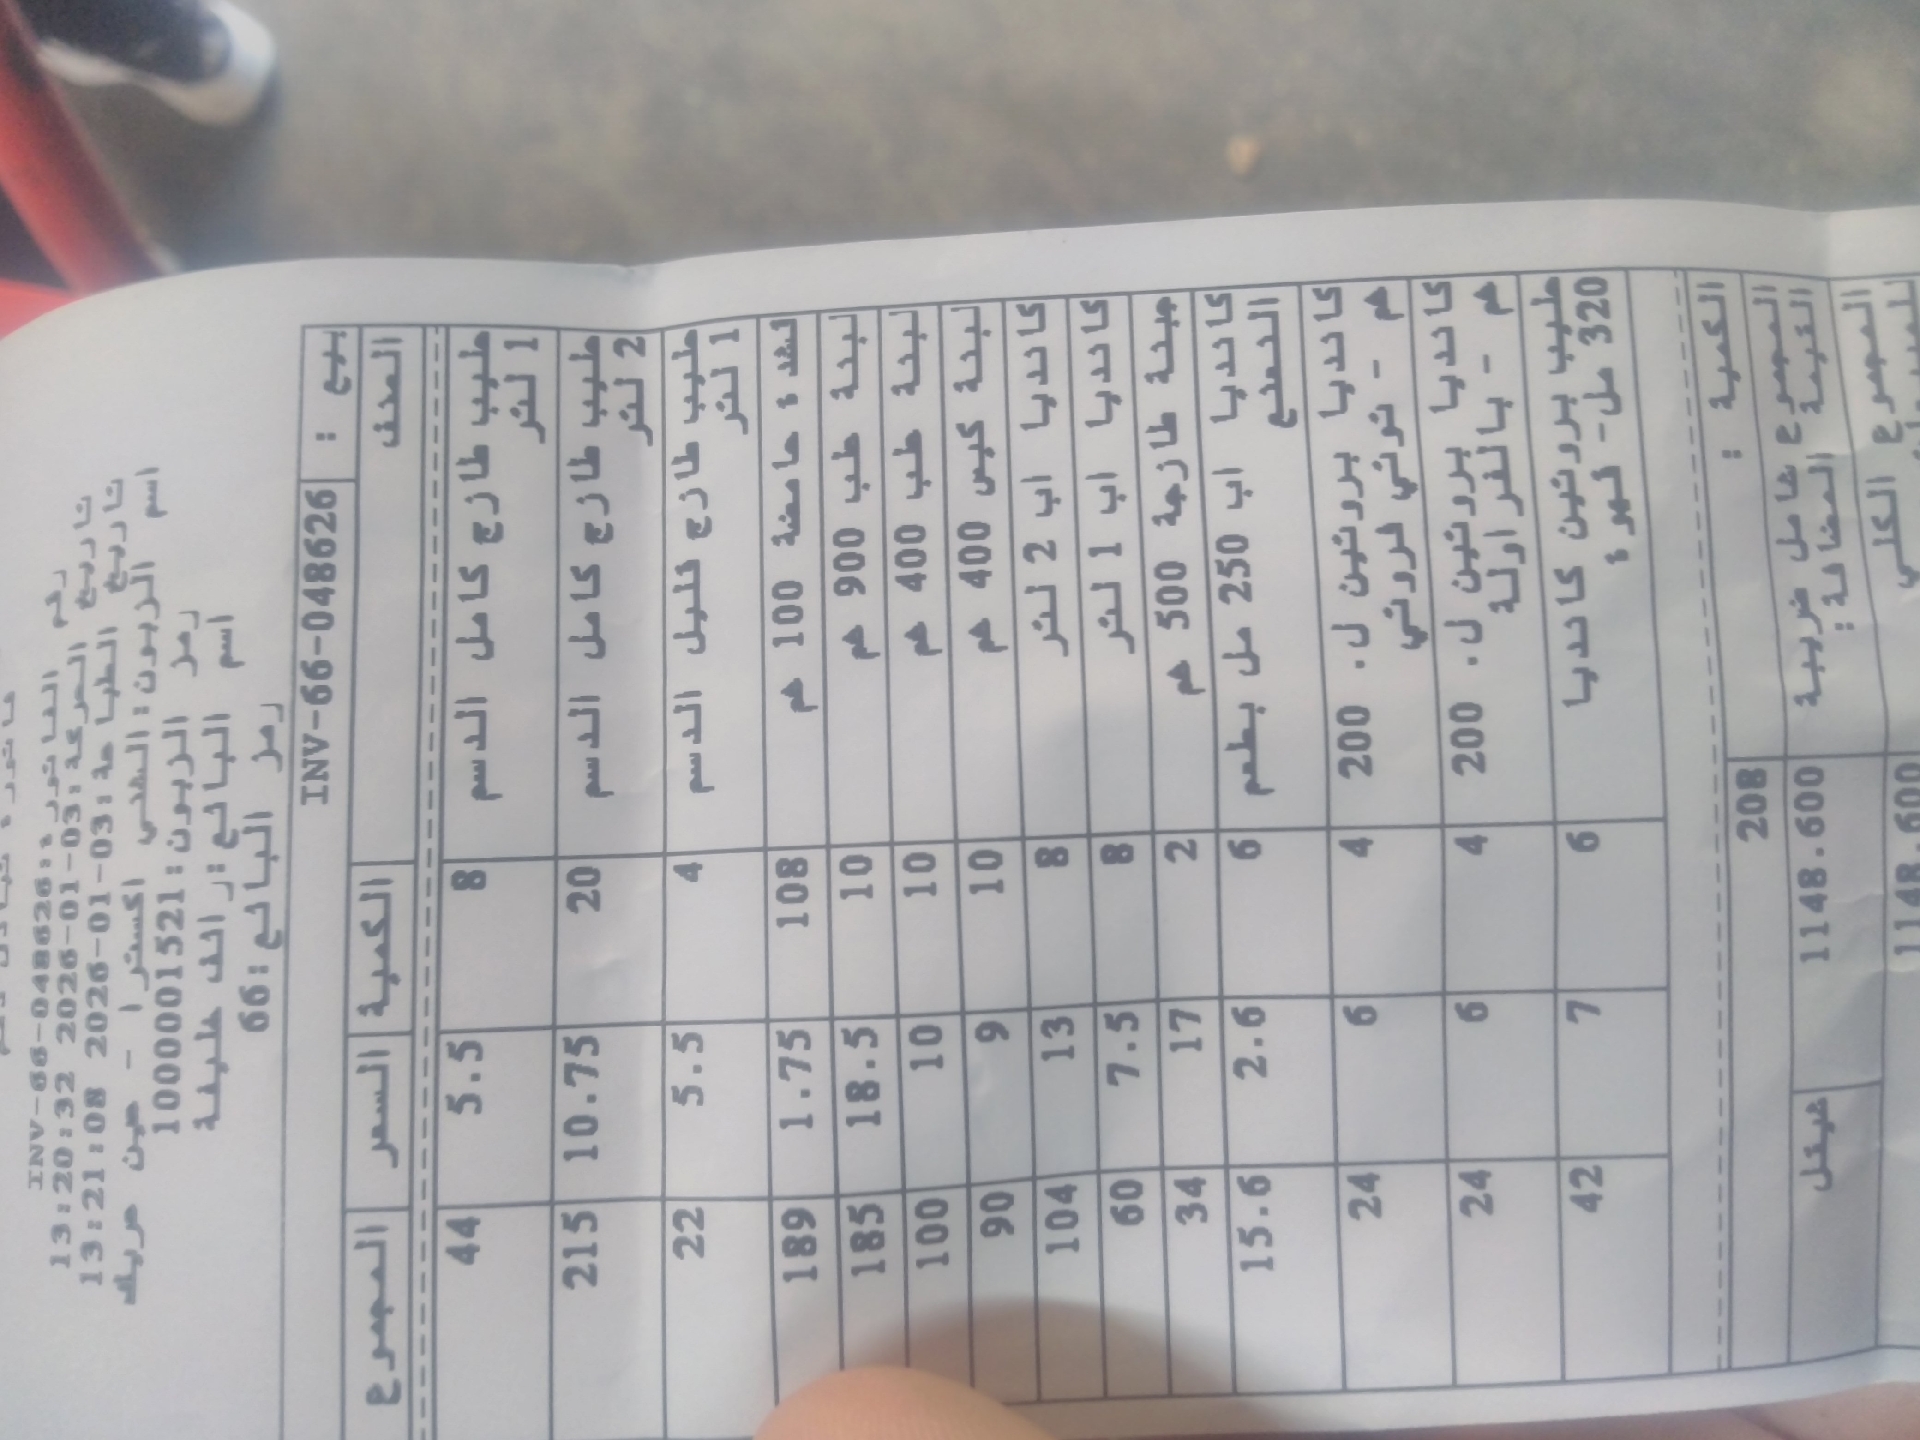 رقم الفاتورة: INV-66-048626
تاريخ الحركة: 2026-01-03 13:20:32
تاريخ الطباعة: 2026-01-03 13:21:08
اسم الزبون: الشني اكسترا - عين عريك
رمز الزبون: 1000001521
اسم البائع: رائف خليفة
رمز البائع: 66
بيع : INV-66-048626
الصنف الكمية السعر المجموع
حليب طازج كامل الدسم 8 5.5 44
1 لتر
حليب طازج كامل الدسم 20 10.75 215
2 لتر
حليب طازج قليل الدسم 4 5.5 22
1 لتر
قشدة حامضة 100 غم 108 1.75 189
لبنة علب 900 غم 10 18.5 185
لبنة علب 400 غم 10 10 100
لبنة كيس 400 غم 10 9 90
كانديا اب 2 لتر 8 13 104
كانديا اب 1 لتر 8 7.5 60
جبنة طازجة 500 غم 2 17 34
كانديا اب 250 مل بطعم 6 2.6 15.6
النعنع
كانديا بروتين ل. 200 4 6 24
غم - توتي فروتي
كانديا بروتين ل. 200 4 6 24
غم - بالفراولة
حليب بروتين كانديا 6 7 42
320 مل- قهوة
الكمية : 208
المجموع شامل ضريبة 1148.600 شيكل
القيمة المضافة:
المجموع الكلي 1148.600